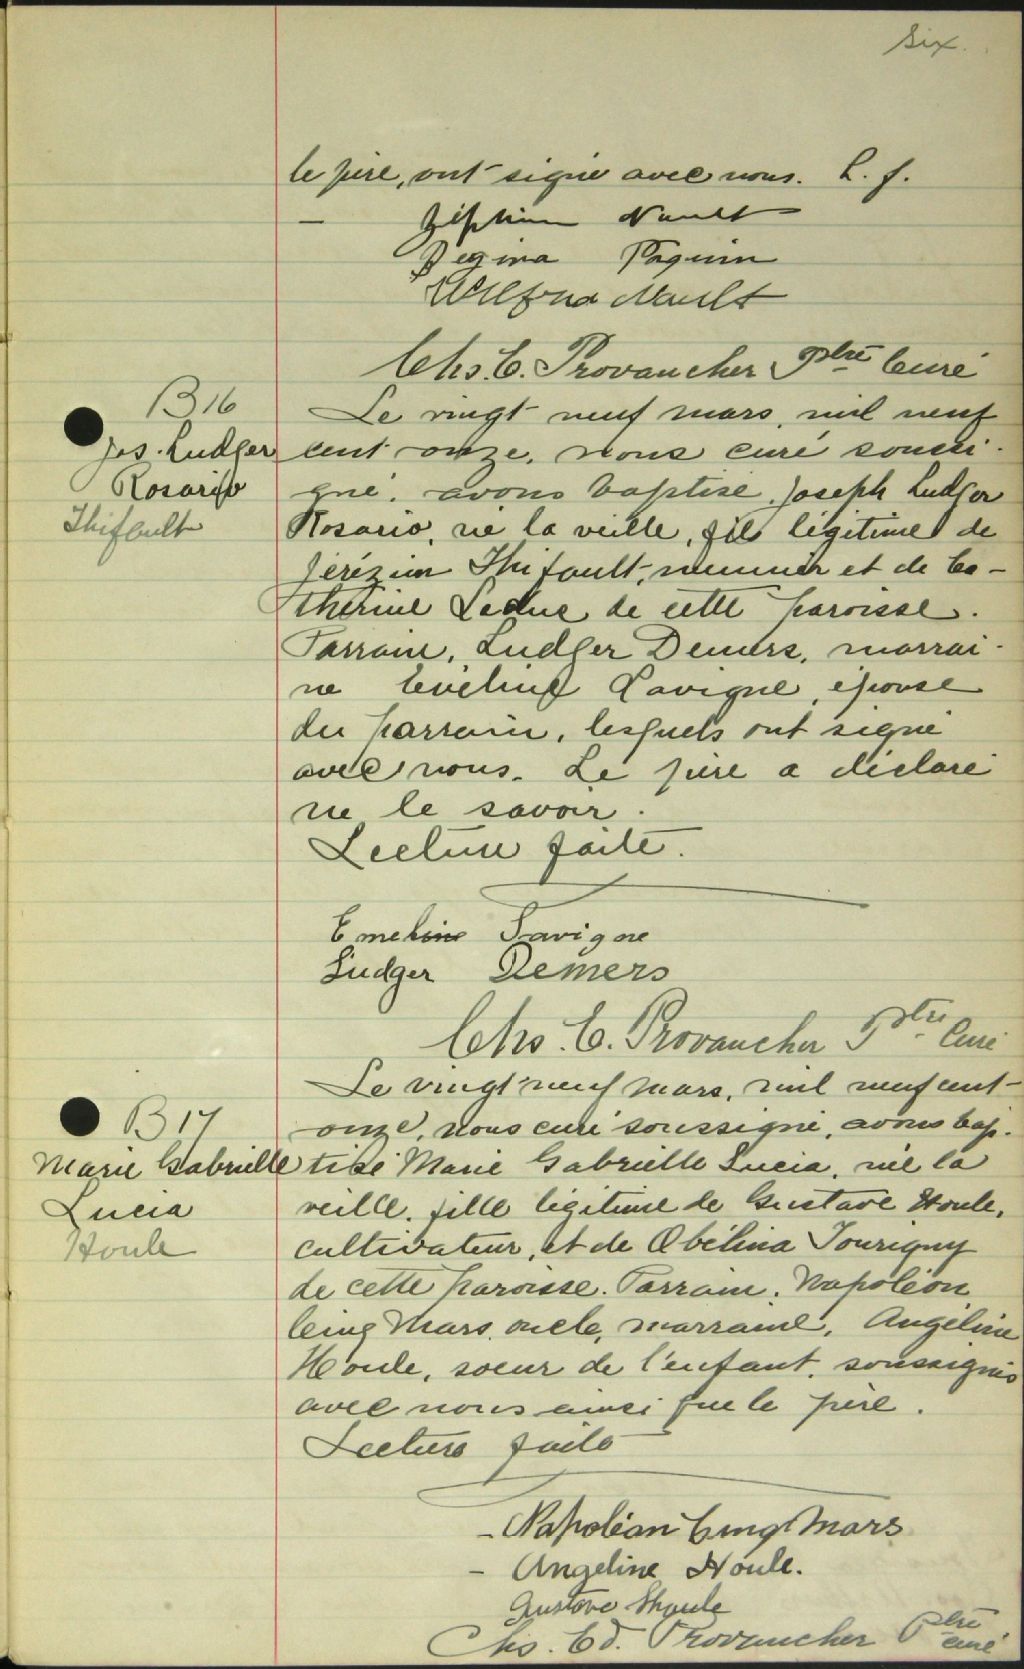 Six.
le père, ont signé avec nous. L. f.
Zéphirin Nault
Regina Paquin
Wilfrid Nault
Chs. E. Provancher Ptre Curé
B 16
Jos. Ludger
Rosario
Thifault
Le vingt neuf mars, mil neuf
cent onze, nous curé soussi-
gné, avons baptisé Joseph Ludger
Rosario, né la veille, fils légitime de
Thifault, meunier et de Ca-
therine Leduc de cette paroisse.
Parrain, Ludger Demers, marrai-
ne Evéline Lavigne, épouse
du parrain, lesquels ont signé
avec nous. Le père a déclaré
ne le savoir.
Lecture faite.
Emeline Lavigne
Ludger Demers
Chs. E. Provancher Ptre Curé
B 17
Marie Gabrielle
Lucia
Houle
Le vingt neuf mars, mil neuf cent-
onze, nous curé soussigné, avons bap-
tisé Marie Gabrielle Lucia, née la
veille, fille légitime de Gustave Houle,
cultivateur, et de Obélina Tourigny
de cette paroisse. Parrain, Napoléon
Cinq Mars, oncle, marraine, Angéline
Houle, soeur de l'enfant, soussignés
avec nous ainsi que le père.
Lecture faite
- Napoléon Cinq Mars
- Angeline Houle.
Gustave Houle
Chs. Ed. Provancher Ptre curé